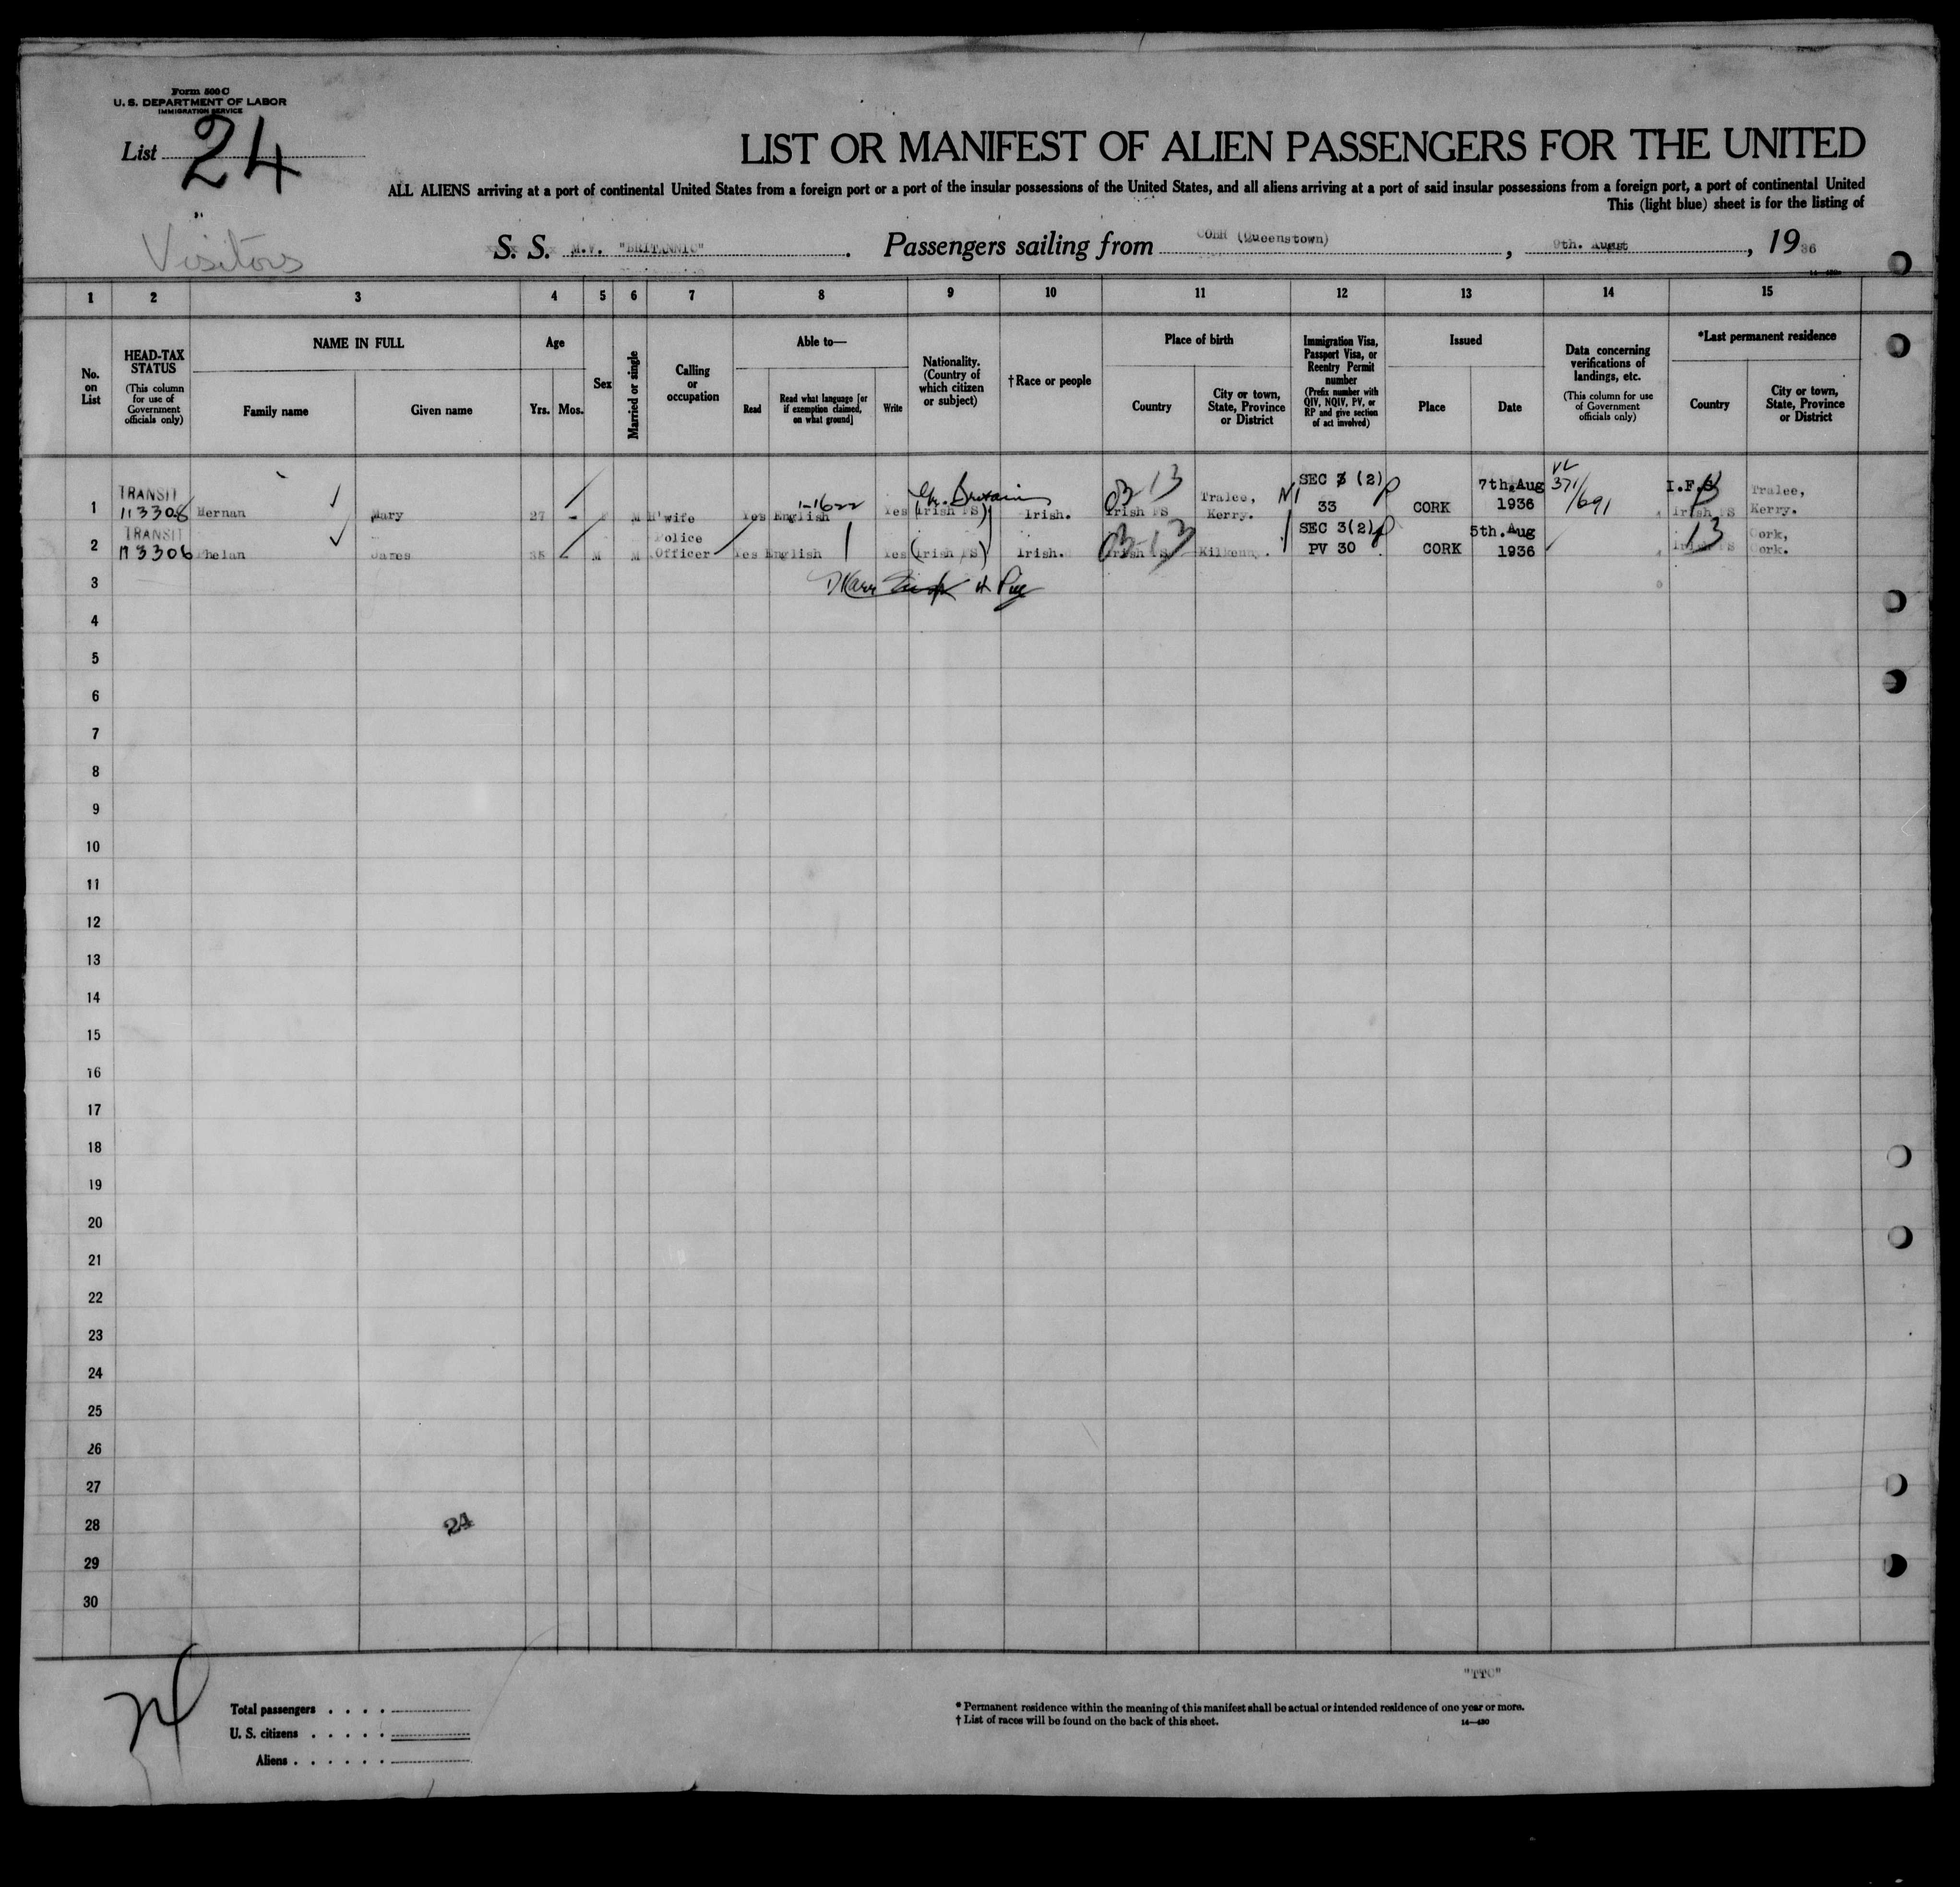 Form 500 C
U. S. DEPARTMENT OF LABOR
IMMIGRATION SERVICE
List 24
LIST OR MANIFEST OF ALIEN PASSENGERS FOR THE UNITED
ALL ALIENS arriving at a port of continental United States from a foreign port or a port of the insular possessions of the United States, and all aliens arriving at a port of said insular possessions from a foreign port, a port of continental United
This (light blue) sheet is for the listing of
Visitors
S. S. M.V. "BRITANNIC". Passengers sailing from COBH (Queenstown), 9th. August, 1936
1 2 3 4 5 6 7 8 9 10 11 12 13 14 15
No. on List
HEAD-TAX STATUS (This column for use of Government officials only)
NAME IN FULL
Family name Given name
Age
Yrs. Mos.
Sex
Married or single
Calling or occupation
Able to—
Read Read what language [or if exemption claimed, on what ground] Write
Nationality. (Country of which citizen or subject)
†Race or people
Place of birth
Country City or town, State, Province or District
Immigration Visa, Passport Visa, or Reentry Permit number (Prefix number with QIV, NQIV, PV, or RP and give section of act involved)
Issued
Place Date
Data concerning verifications of landings, etc. (This column for use of Government officials only)
*Last permanent residence
Country City or town, State, Province or District
1 TRANSIT 113308 Hernan Mary 27 - F M H'wife Yes English 1-1622 Yes Gr. Britain (Irish FS) Irish. 13 Irish FS Tralee, Kerry. SEC 3 (2) 33 CORK 7th.Aug 1936 371/691 I.F.S Irish FS Tralee, Kerry.
2 TRANSIT 113306 Phelan James 35 - M M Police Officer Yes English Yes (Irish FS) Irish. 13 Irish FS Kilkenny. SEC 3(2) PV 30 CORK 5th.Aug 1936 13 Irish FS Cork, Cork.
3
4
5
6
7
8
9
10
11
12
13
14
15
16
17
18
19
20
21
22
23
24
25
26
27
28
24
29
30
"TTC"
Total passengers . . . .
U. S. citizens . . . . .
Aliens . . . . . .
* Permanent residence within the meaning of this manifest shall be actual or intended residence of one year or more.
† List of races will be found on the back of this sheet.
14—480